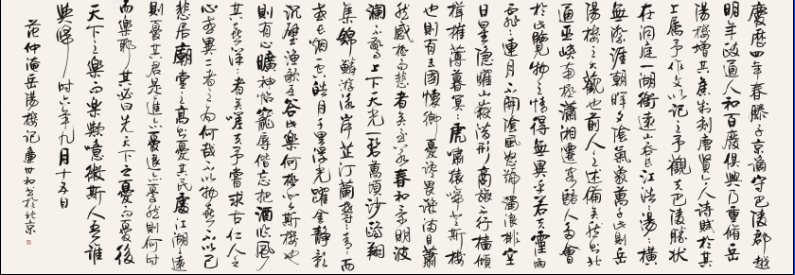 慶曆四年春滕子京謫守巴陵郡越
明年政通人和百廢俱興乃重脩岳
陽樓增其舊制刻唐賢今人詩賦於其
上屬予作文以記之予觀夫巴陵勝狀
在洞庭一湖銜遠山吞長江浩浩湯湯橫
無際涯朝暉夕陰氣象萬千此則岳
陽樓之大觀也前人之述備矣然則北
通巫峽南極瀟湘遷客騷人多會
於此覽物之情得無異乎若夫霪雨
霏霏連月不開陰風怒號濁浪排空
日星隱曜山嶽潛形商旅不行檣傾
楫摧薄暮冥冥虎嘯猿啼登斯樓
也則有去國懷鄉憂讒畏譏滿目蕭
然感極而悲者矣至若春和景明波
瀾不驚上下天光一碧萬頃沙鷗翔
集錦鱗游泳岸芷汀蘭郁郁青青而
或長煙一空皓月千里浮光躍金靜影
沉璧漁歌互答此樂何極登斯樓也
則有心曠神怡寵辱偕忘把酒臨風
其喜洋洋者矣嗟夫予嘗求古仁人之
心或異二者之為何哉不以物喜不以己
悲居廟堂之高則憂其民處江湖之遠
則憂其君是進亦憂退亦憂然則何時
而樂耶其必曰先天下之憂而憂後
天下之樂而樂歟噫微斯人吾誰
與歸 時六年九月十五日
范仲淹岳陽樓記 和書於北京